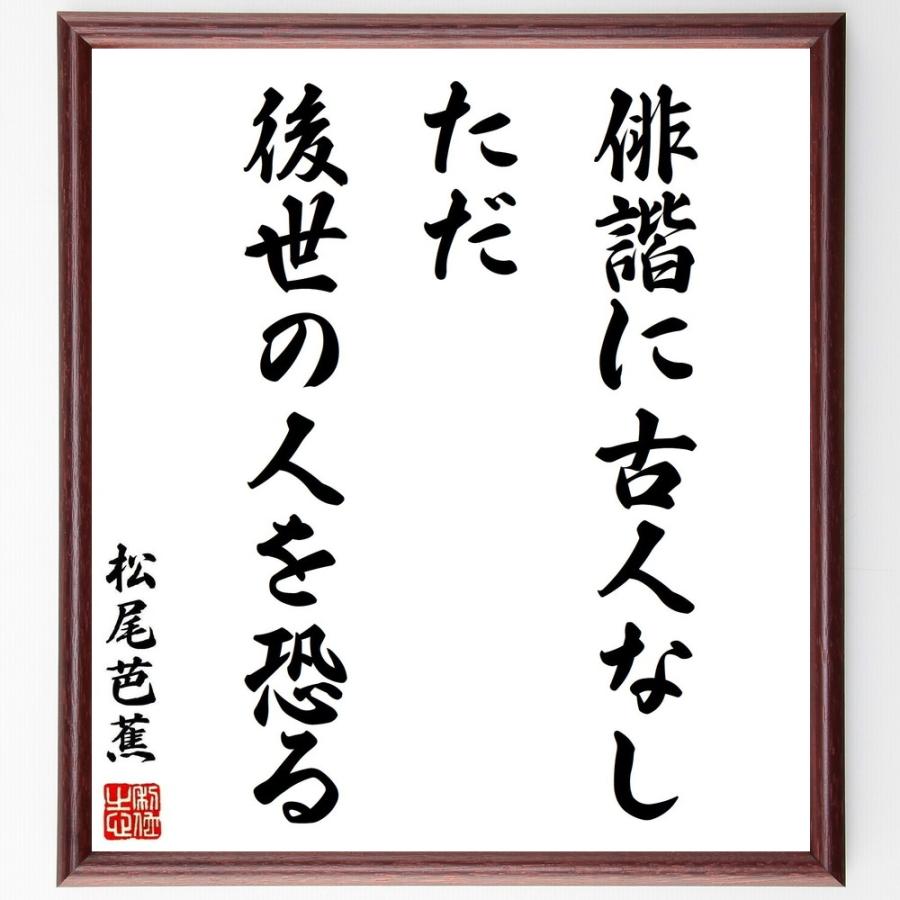 俳諧に古人なし
ただ
後世の人を恐る
松尾芭蕉